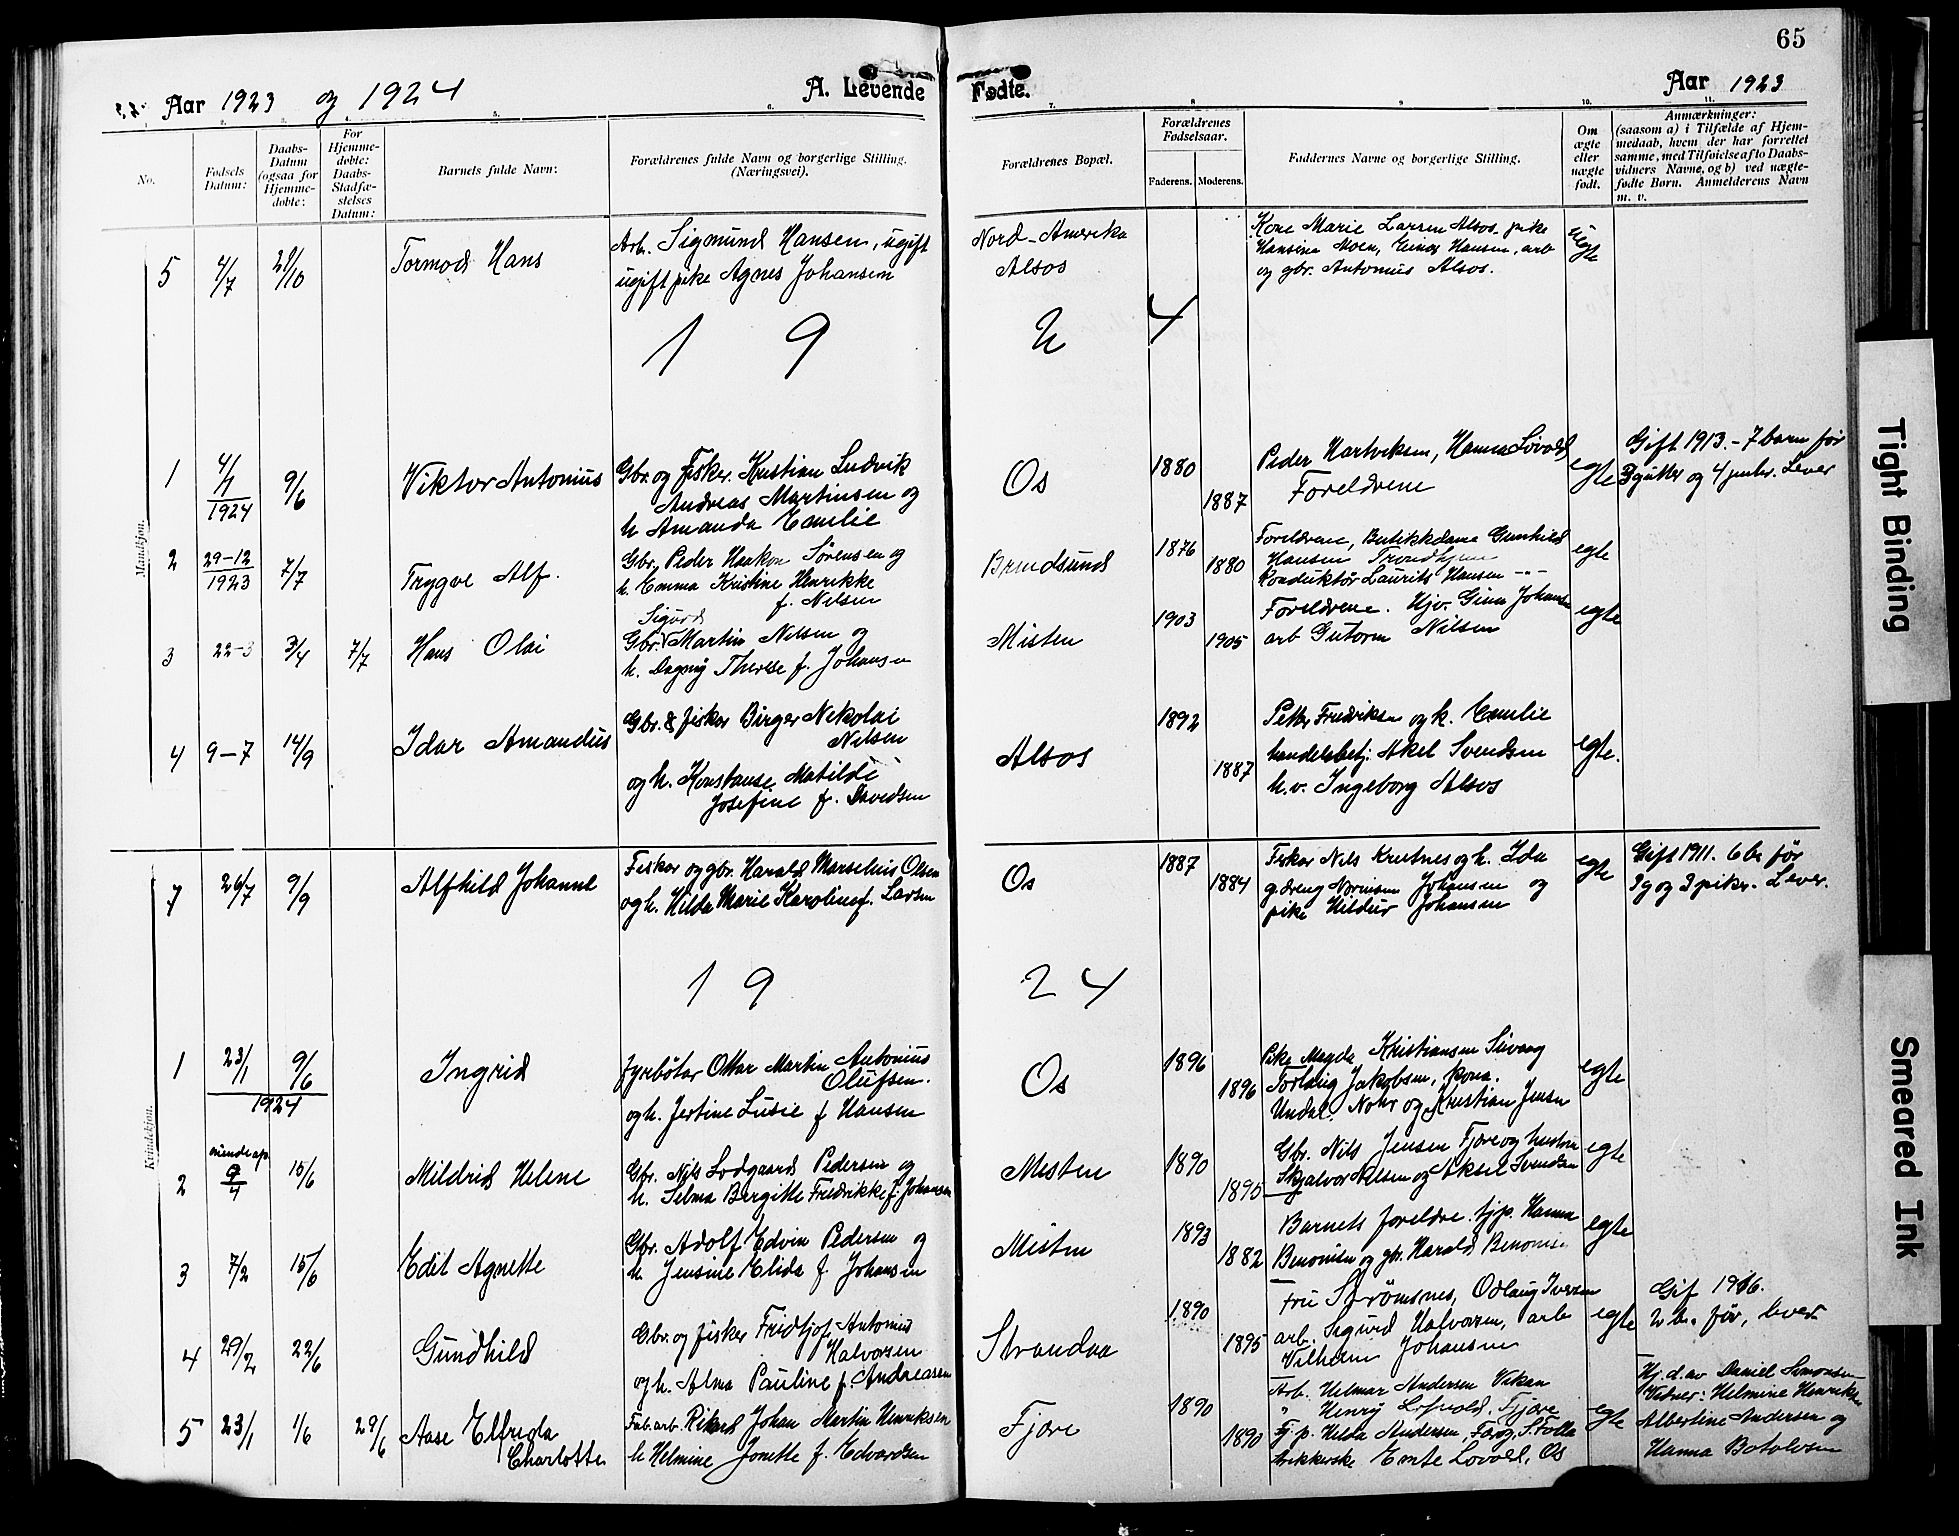 65
Aar 1923 og 1924
A. Levende Fødte.
Aar 1923
5. 6. 7. 8 9 10. 11.
No.
Fødsels Datum:
Daabs-Datum (ogsaa for Hjemme-døbte:
For Hjemme-døbte: Daabs-Stadfæ-stelses Datum:
Barnets fulde Navn:
Forældrenes fulde Navn og borgerlige Stilling. (Næringsvei).
Forældrenes Bopæl.
Forældrenes Fødselsaar.
Faderens. Moderens.
Faddernes Navne og borgerlige Stilling.
Om ægte eller uægte født.
Anmærkninger: (saasom a) i Tilfælde af Hjem-medaab, hvem der har forrettet samme, med Tilføielse af to Daabs-vidners Navne, og b) ved uægte-fødte Børn. Anmelderens Navn m. v.
Mandkjøn.
5 4/7 28/10 Tormod Hans
Arb. Sigmund Hansen, ugift
ugift pike Agnes Johansen
Nord-Amerika
Alsos
Kone Marie Larsen Alsos, pike
Hansine Moen, Einar Hansen, arb
og gbr. Antonius Alsos.
uegte
1 9 2 4
1 4/1 1924 9/6 Viktor Antonius
Gbr. og fisker Kristian Ludvik
Andreas Martinsen og
h. Amanda Emelie
Os 1880 1887
Peder Hartviksen, Hanna Løvold
Foreldrene
egte
Gift 1913. - 7 barn før
3 gutter og 4 Lever
2 29-12 1923 7/7 Trygve Alf.
Gbr. Peder Haakon Sørensen og
h. Emma Kristine Henrikke
f. Nilsen
Brendsund 1876 1880
Foreldrene, Butikkdame Gunhild
Hansen Trondhjem
Konduktør Laurits Hansen -"-
egte
3 22-3 3/4 7/7 Hans Olai
Sigurd
Gbr. Martin Nilsen og
h. Dagny Therese f. Johansen
Misten 1903 1905
Foreldrene. Johansen
arb Gutorm Nilsen
egte
4 9-7 14/9 Idar Amandus
Gbr. & fisker Birger Nikolai
Nilsen
og h. Konstanse Matilde
Josefine f. Davidsen
Alsos 1892 1887
Petter Fredriksen og k. Emelie
handelsbetj. Aksel Svendsen
h.v. Ingeborg Alsos
egte.
7 26/7 9/9 Alfhild Johanne
Fisker og gbr. Harald Marselius Olsen
og h. Hilda Marie Karoline f. Larsen
Os 1887 1884
Fisker Nils og h. Ida
gdreng Johansen og
pike Hildur Johansen
egte
Gift 1911. 6 b. før
3 g og 3 piker. Lever.
1 9 2 4
Kvindekjøn.
1 23/1 9/6 1924 Ingrid
Fyrbøter Ottar Martin Antonius
Olufsen.
og h. Jertine Lusie f Hansen
Os 1896 1896
Pike Magda Kristiansen
Torlaug Jakobsen, kona
Undal. Nohr og Kristian Jensen
egte
2 9/4 15/6 Mildrid Helene
Gbr. Nils Lodgaard Pedersen og
h. Selma Bergitte Fredrikke f. Johansen
Misten 1890 1895
Gbr. Nils Jensen Fjære og hustru
Skjalvor Nilsen og Aksel Svendsen
egte
3 7/2 15/6 Edit Agnette
Gbr. Adolf Edvin Pedersen og
h. Jensine Elida f. Johansen
Misten 1893 1882
Barnets foreldre. tjp. Hanna
Benonisen og gbr. Harald Benonisen
egte
4 29/2 22/6 Gundhild
Gbr. og fisker Fridtjof Antonius
Halvorsen
og h. Alma Pauline f. Andreassen
Strandaa 1890 1895
Fru Strømsnes, Odlaug Iversen
arb. Sigurd Halvorsen, arb
Vilhelm Johansen
egte
Gif 1916.
2 b. før, lever
5 23/1 1/6 29/6 Aase Elfreda
Charlotte
Fab. arb. Rikard Johan Martin Henriksen
h Helmine Jonette f. Edvardsen
Fjære 1890 1890
Arb. Helmar Andersen Vikan
" Henry Løfvold, Fjære
Tj. p. Hilda Andersen, S. Folla
Emte Lovold, Os
egte
Hj. d. av Daniel Simonsen
Vidner: Helmine Henriksen
Albertine Andersen og
Hanna Botolvsen
Tight Binding
Smeared Ink